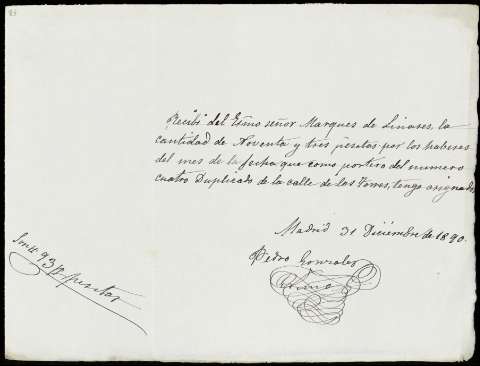 Recibí del Esmo señor Marques de Linares, la
cantidad de Noventa y tres pesetas por los haberes
del mes de la fecha que como portero del numero
cuatro Duplicado de la calle de las Torres, tengo asignados
Madrid 31 Diciembre de 1890.
Pedro Gonzalez
Son 93 pesetas